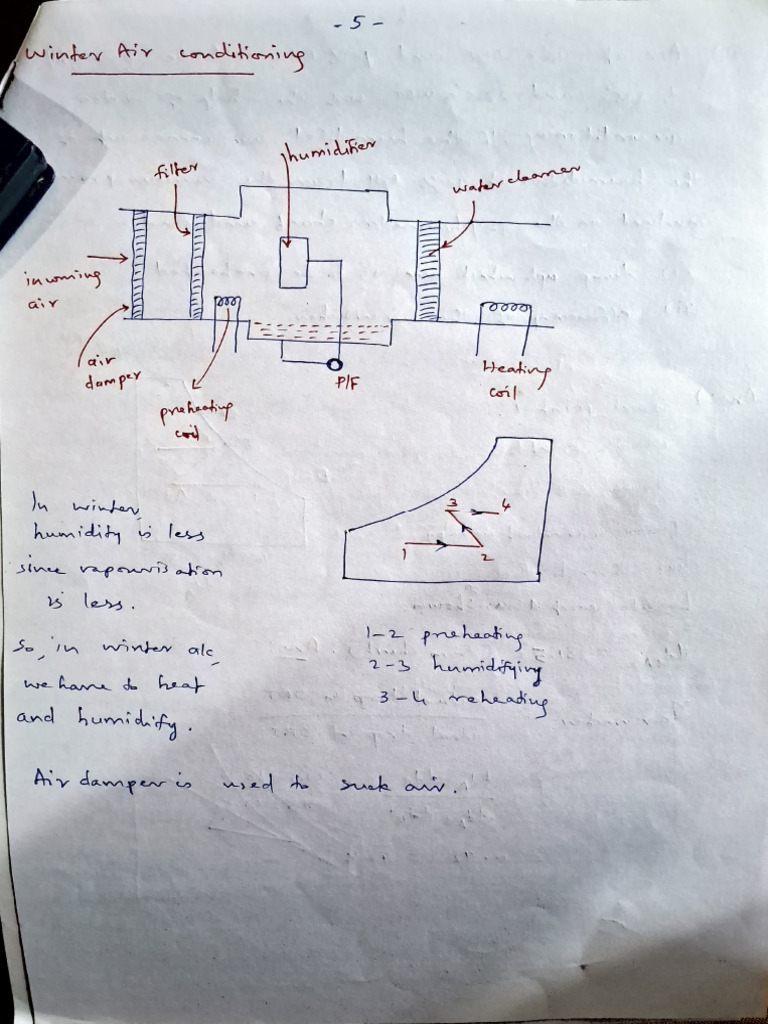 - 5 -
Winter Air conditioning
humidifier
filter
water cleaner
incoming
air
air
damper
preheating
coil
P/F
Heating
coil
In winter,
humidity is less
since vapourisation
is less.
So, in winter a/c,
we have to heat
and humidify.
3
4
1
2
1-2 preheating
2-3 humidifying
3-4 reheating
Air damper is used to suck air.